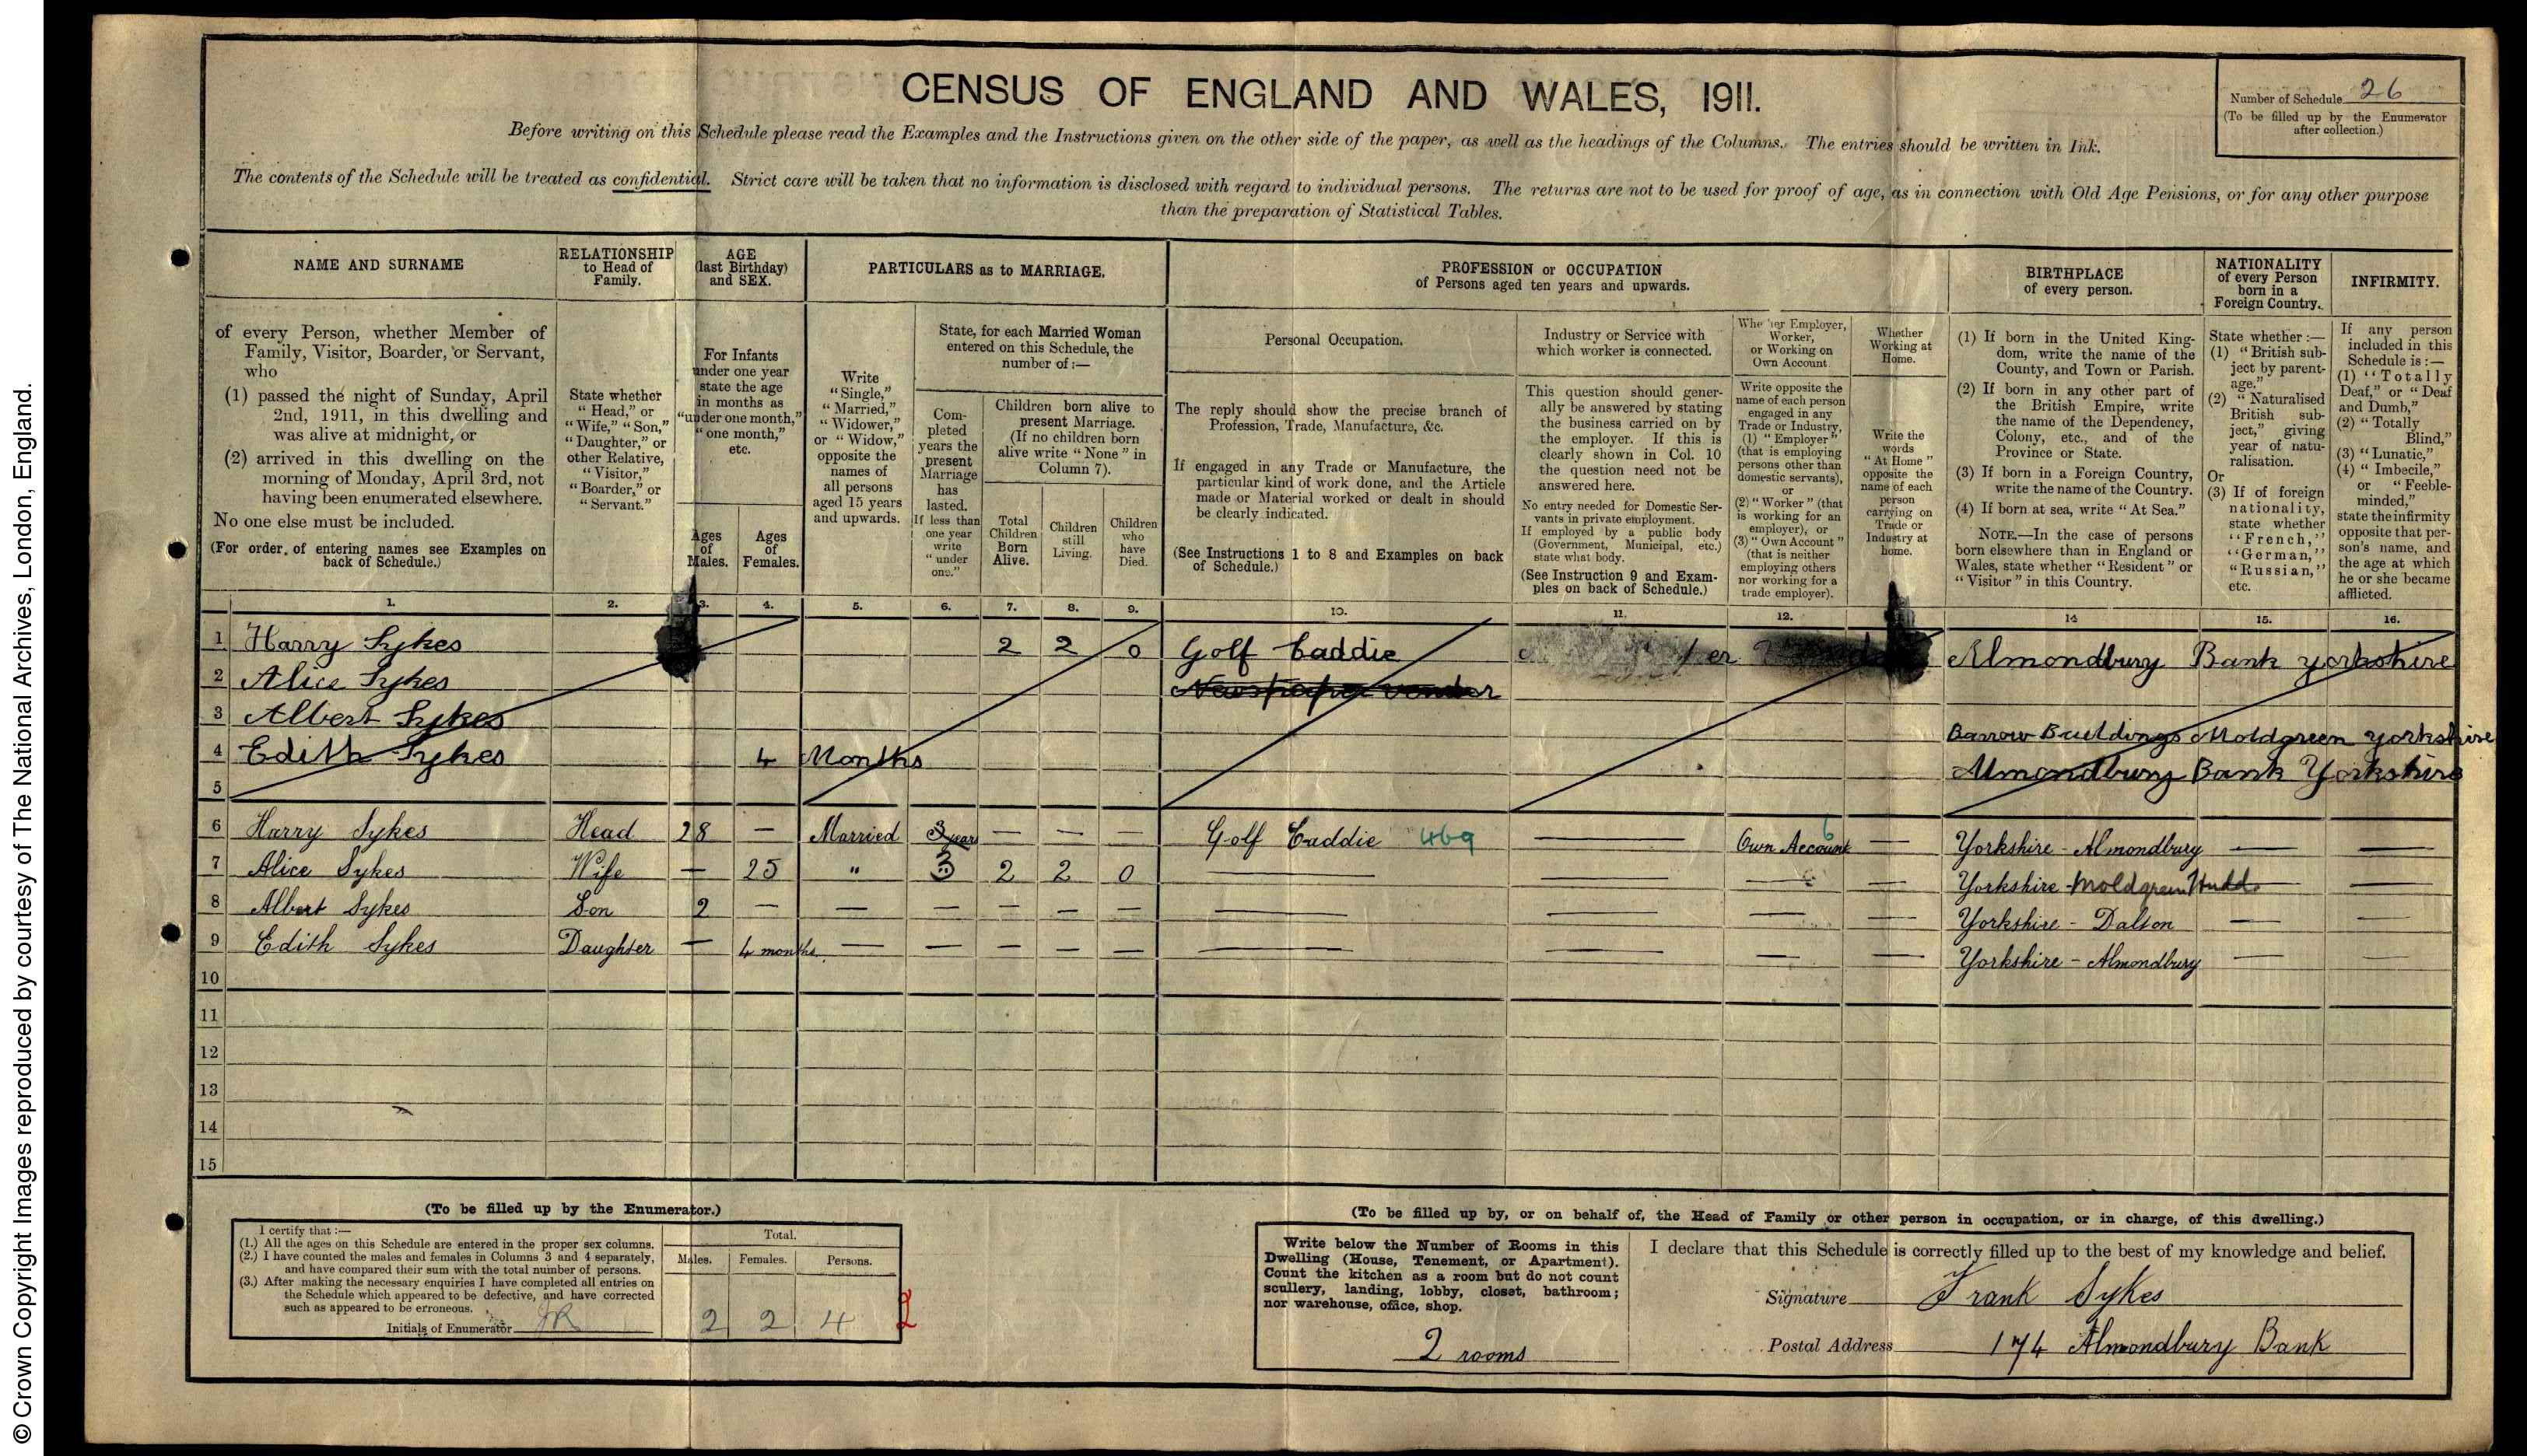 © Crown Copyright Images reproduced by courtesy of The National Archives, London, England.
CENSUS OF ENGLAND AND WALES, 1911.
Number of Schedule 26
(To be filled up by the Enumerator
after collection.)
Before writing on this Schedule please read the Examples and the Instructions given on the other side of the paper, as well as the headings of the Columns. The entries should be written in Ink.
The contents of the Schedule will be treated as confidential. Strict care will be taken that no information is disclosed with regard to individual persons. The returns are not to be used for proof of age, as in connection with Old Age Pensions, or for any other purpose
than the preparation of Statistical Tables.
NAME AND SURNAME
of every Person, whether Member of
Family, Visitor, Boarder, or Servant,
who
(1) passed the night of Sunday, April
2nd, 1911, in this dwelling and
was alive at midnight, or
(2) arrived in this dwelling on the
morning of Monday, April 3rd, not
having been enumerated elsewhere.
No one else must be included.
(For order of entering names see Examples on
back of Schedule.)
RELATIONSHIP
to Head of
Family.
State whether
"Head," or
"Wife," "Son,"
"Daughter," or
other Relative,
"Visitor,"
"Boarder," or
"Servant."
AGE
(last Birthday)
and SEX.
For Infants
under one year
state the age
in months as
"under one month,"
"one month,"
etc.
Ages
of
Males.
Ages
of
Females.
PARTICULARS as to MARRIAGE.
Write
"Single,"
"Married,"
"Widower,"
or "Widow,"
opposite the
names of
all persons
aged 15 years
and upwards.
State, for each Married Woman
entered on this Schedule, the
number of :—
Com-
pleted
years the
present
Marriage
has
lasted.
If less than
one year
write
"under
one."
Children born alive to
present Marriage.
(If no children born
alive write "None" in
Column 7).
Total
Children
Born
Alive.
Children
still
Living.
Children
who
have
Died.
PROFESSION or OCCUPATION
of Persons aged ten years and upwards.
Personal Occupation.
The reply should show the precise branch of
Profession, Trade, Manufacture, &c.
If engaged in any Trade or Manufacture, the
particular kind of work done, and the Article
made or Material worked or dealt in should
be clearly indicated.
(See Instructions 1 to 8 and Examples on back
of Schedule.)
Industry or Service with
which worker is connected.
This question should gener-
ally be answered by stating
the business carried on by
the employer. If this is
clearly shown in Col. 10
the question need not be
answered here.
No entry needed for Domestic Ser-
vants in private employment.
If employed by a public body
(Government, Municipal, etc.)
state what body.
(See Instruction 9 and Exam-
ples on back of Schedule.)
Whether Employer,
Worker,
or Working on
Own Account
Write opposite the
name of each person
engaged in any
Trade or Industry,
(1) "Employer"
(that is employing
persons other than
domestic servants),
or
(2) "Worker" (that
is working for an
employer), or
(3) "Own Account"
(that is neither
employing others
nor working for a
trade employer).
Whether
Working at
Home.
Write the
words
"At Home"
opposite the
name of each
person
carrying on
Trade or
Industry at
home.
BIRTHPLACE
of every person.
(1) If born in the United King-
dom, write the name of the
County, and Town or Parish.
(2) If born in any other part of
the British Empire, write
the name of the Dependency,
Colony, etc., and of the
Province or State.
(3) If born in a Foreign Country,
write the name of the Country.
(4) If born at sea, write "At Sea."
NOTE.—In the case of persons
born elsewhere than in England or
Wales, state whether "Resident" or
"Visitor" in this Country.
NATIONALITY
of every Person
born in a
Foreign Country.
State whether :—
(1) "British sub-
ject by parent-
age."
(2) "Naturalised
British sub-
ject," giving
year of natu-
ralisation.
Or
(3) If of foreign
nationality,
state whether
"French,"
"German,"
"Russian,"
etc.
INFIRMITY.
If any person
included in this
Schedule is :—
(1) "Totally
Deaf," or "Deaf
and Dumb,"
(2) "Totally
Blind,"
(3) "Lunatic,"
(4) "Imbecile,"
or "Feeble-
minded,"
state the infirmity
opposite that per-
son's name, and
the age at which
he or she became
afflicted.
1. 2. 3. 4. 5. 6. 7. 8. 9. 10. 11. 12. 14 15. 16.
1 Harry Sykes 2 2 0 Golf Caddie Almondbury Bank yorkshire
2 Alice Sykes Newspaper vender
3 Albert Sykes Barrow Buildings Moldgreen yorkshire
4 Edith Sykes 4 Months Almondbury Bank Yorkshire
5
6 Harry Sykes Head 28 — Married 3 years — — — Golf Caddie 469 — Own Account 6 — Yorkshire - Almondbury — —
7 Alice Sykes Wife — 25 " 3 2 2 0 — — — — Yorkshire - Moldgreen Hudd. — —
8 Albert Sykes Son 2 — — — — — — — — — — Yorkshire - Dalton — —
9 Edith Sykes Daughter — 4 months. — — — — — — — — — Yorkshire - Almondbury — —
10
11
12
13
14
15
(To be filled up by the Enumerator.)
I certify that :—
(1.) All the ages on this Schedule are entered in the proper sex columns.
(2.) I have counted the males and females in Columns 3 and 4 separately,
and have compared their sum with the total number of persons.
(3.) After making the necessary enquiries I have completed all entries on
the Schedule which appeared to be defective, and have corrected
such as appeared to be erroneous.
Initials of Enumerator JR
Total.
Males. Females. Persons.
2 2 4 2
(To be filled up by, or on behalf of, the Head of Family or other person in occupation, or in charge, of this dwelling.)
Write below the Number of Rooms in this
Dwelling (House, Tenement, or Apartment).
Count the kitchen as a room but do not count
scullery, landing, lobby, closet, bathroom;
nor warehouse, office, shop.
2 rooms
I declare that this Schedule is correctly filled up to the best of my knowledge and belief.
Signature Frank Sykes
Postal Address 174 Almondbury Bank